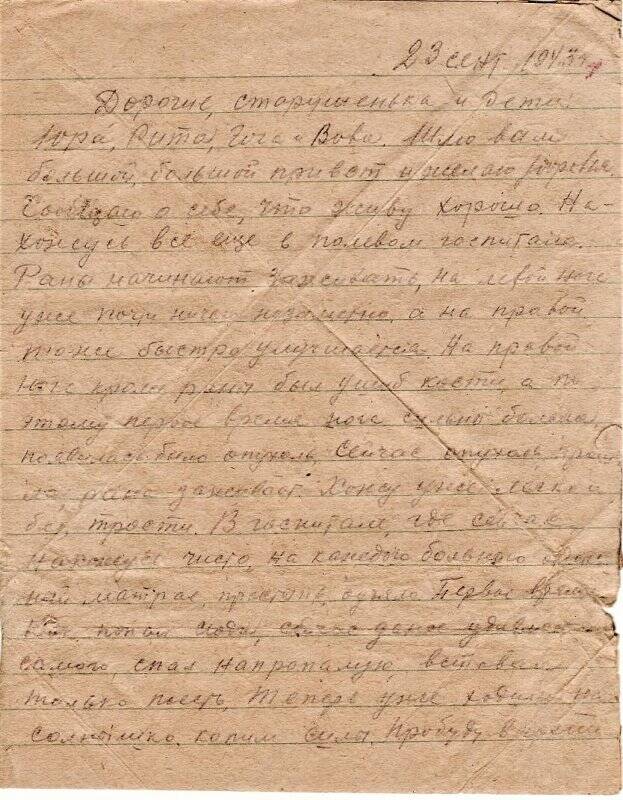 23 сент 1943 г
Дорогие, старушенька и дети
Юра, Рита, Гога и Вова. Шлю вам
большой, большой привет и желаю здоровья.
Сообщаю о себе, что живу хорошо. На-
хожусь все еще в полевом госпитале.
Раны начинают заживать, на левой ноге
уже почти ничего незаметно, а на правой
тоже быстро улучшается. На правой
ноге кроме раны был ушиб кости, а по-
этому первое время нога сильно болела,
появилась было опухоль. Сейчас опухоль
рана заживает. Хожу уже легко и
без трости. В госпитале, где сейчас
нахожусь чисто, на каждого больного
матрас, простыня, одеяло. Первое время
как попал сюда, сейчас даже
самого, спал напропалую, вставал
только поесть. Теперь уже ходим на
солнышко, копим силы. Пробуду